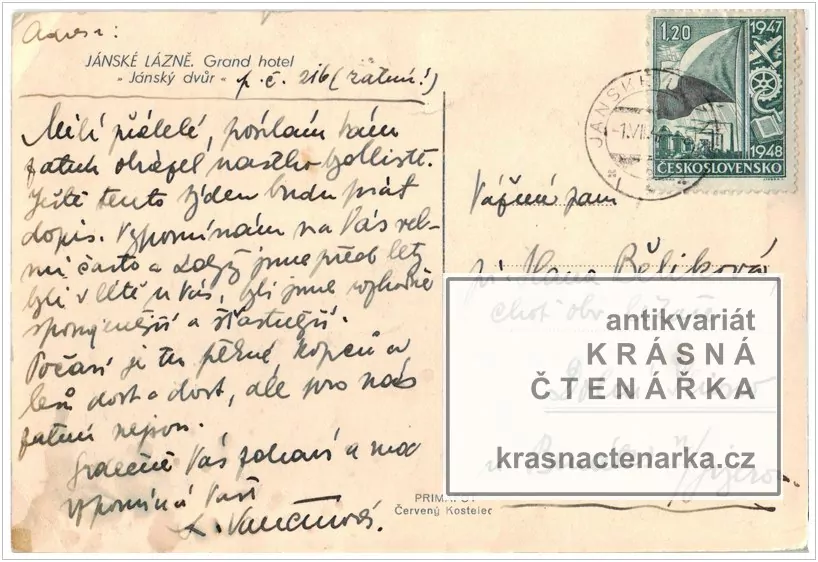 Adresa:
JÁNSKÉ LÁZNĚ. Grand hotel
„Jánský dvůr“ p. č. 216 (zatím!)
Milí přátelé, posílám Vám
zatím obrázek našeho bydliště.
Ještě tento týden budu psát
dopis. Vzpomínám na Vás vel-
mi často a když jsme před lety
byli v létě u Vás, byli jsme rozhodně
spokojenější a šťastnější.
Počasí je tu pěkné, kopců a
lesů dost a dost, ale pro nás
zatím nejsou.
Srdečně Vás zdraví a moc
vzpomíná Vaše
L. Vančurová.
1,20
1947
1948
ČESKOSLOVENSKO
JÁNSKÉ
-1.VII.
Vážená paní
pí. Hana Bělíková,
choť
antikvariát
KRÁSNÁ
ČTENÁŘKA
krasnactenarka.cz
Červený Kostelec